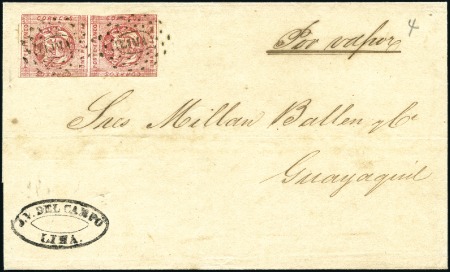 4
Por vapor
Sres Millan Ballen y Cº
Guayaquil
J. V. DEL CAMPO
LIMA.